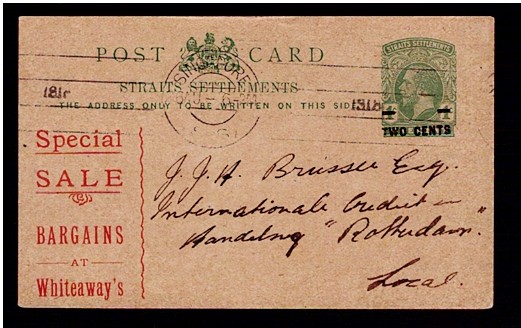 POST CARD
STRAITS SETTLEMENTS
THE ADDRESS ONLY TO BE WRITTEN ON THIS SIDE
STRAITS SETTLEMENTS
TWO CENTS
SINGAPORE
1318
Special
SALE
BARGAINS
AT
Whiteaway's
J. J. H. Brussee Esq.
Internationale Credit en
Handelsvg "Rotterdam."
Local.